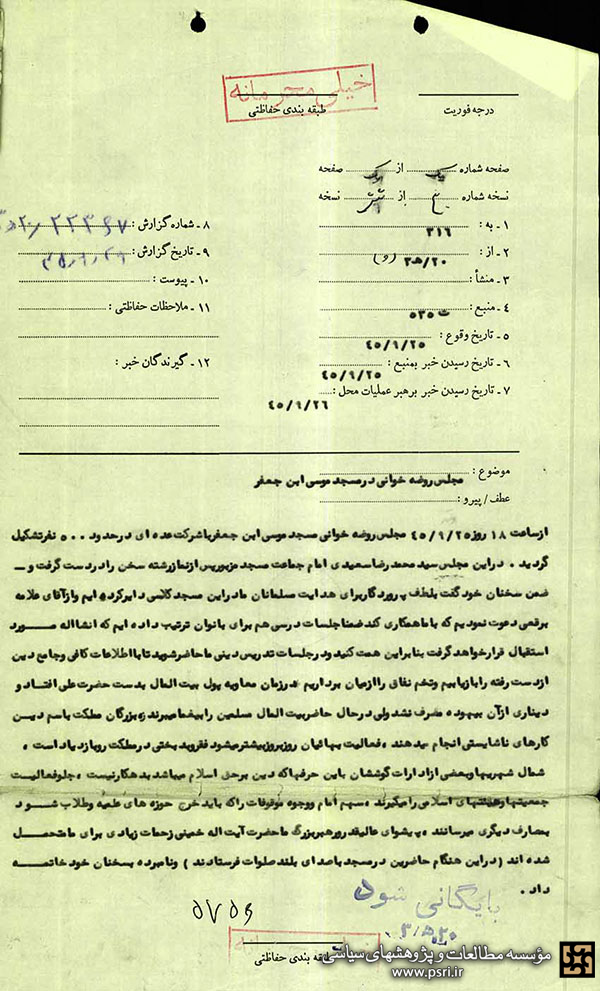 خیلی محرمانه
درجه فوریت
طبقه بندی حفاظتی
صفحه شماره یک از یک صفحه
نسخه شماره از شش نسخه
۱ ـ به : ۳۱۶
۲ ـ از : ۲۰/ه۳ (و)
۳ ـ منشأ :
۴ ـ منبع : ث ۵۳۵
۵ ـ تاریخ وقوع : ۴۵/۹/۲۵
۶ ـ تاریخ رسیدن خبر بمنبع : ۴۵/۹/۲۵
۷ ـ تاریخ رسیدن خبر برهبر عملیات محل : ۴۵/۹/۲۶
۸ ـ شماره گزارش :
۹ ـ تاریخ گزارش :
۱۰ ـ پیوست :
۱۱ ـ ملاحظات حفاظتی :
۱۲ ـ گیرندگان خبر :
موضوع : مجلس روضه خوانی در مسجد موسی ابن جعفر
عطف / پیرو :
از ساعت ۱۸ روز ۴۵/۹/۲۵ مجلس روضه خوانی مسجد موسی ابن جعفر با شرکت عده ای در حدود ۵۰۰ نفر تشکیل
گردید . در این مجلس سید محمد رضا سعیدی امام جماعت مسجد مزبور پس از نماز رشته سخن را در دست گرفت و ـ
ضمن سخنان خود گفت بلطف پروردگار برای هدایت مسلمانان ما در این مسجد کلاسی دایر کرده ایم و از آقای علامه
برقعی دعوت نمودیم که با ما همکاری کند ضمنا جلسات درسی هم برای بانوان ترتیب داده ایم که انشااله مورد
استقبال قرار خواهد گرفت بنابراین همت کنید و در جلسات تدریس دینی ما حاضر شوید تا با اطلاعات کافی و جامع دین
از دست رفته را بازیابیم و تخم نفاق را از میان برداریم در زمان معاویه پول بیت المال بدست حضرت علی افتاد و
دیناری از آن بیهوده مصرف نشد ولی در حال حاضر بیت المال مسلمین را بیغما میبرند بزرگان مملکت باسم دین
کارهای ناشایستی انجام میدهند . فعالیت بهائیان روز بروز بیشتر میشود فقر و بدبختی در مملکت رو بازدیاد است .
شمال شهریها و بعضی از ادارات گوششان باین حرفها که دین بر حق اسلام میباشد بدهکار نیست . جلو فعالیت
جمعیتها و هیئتهای اسلامی را میگیرند . سهم امام و وجوه موقوفات را که باید خرج حوزه های علمیه و طلاب شود
بمصارف دیگری میرسانند . پیشوای عالیقدر و رهبر بزرگ ما حضرت آیت اله خمینی زحمات زیادی برای ما متحمل
شده اند ( در این هنگام حاضرین در مسجد با صدای بلند صلوات فرستادند ) و نامبرده بسخنان خود خاتمه
داد .
بایگانی شود
طبقه بندی حفاظتی
مؤسسه مطالعات و پژوهشهای سیاسی
www.psri.ir